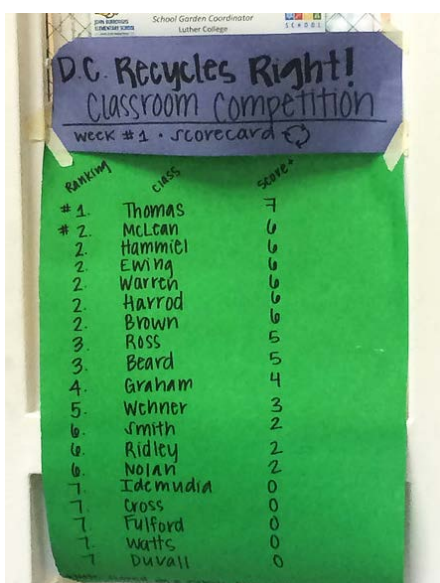 School Garden Coordinator
JOHN BURROUGHS
ELEMENTARY SCHOOL
Luther College
SCHOOL
D.C. Recycles Right!
Classroom Competition
week #1 • scorecard
Ranking class score*
#1. Thomas 7
#2. McLean 6
2. Hammiel 6
2. Ewing 6
2. Warren 6
2. Harrod 6
2. Brown 6
3. Ross 5
3. Beard 5
4. Graham 4
5. Wehner 3
6. Smith 2
6. Ridley 2
6. Nolan 2
7. Idemudia 0
7. Cross 0
7. Fulford 0
7. Watts 0
7 Duvall 0